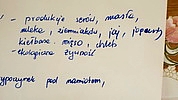 - produkcje serów, masła,
mleka, ziemniaków, jaj, jogurty
kiełbasa, mięso, chleb
- ekologiczna żywność
wypoczynek pod namiotem,